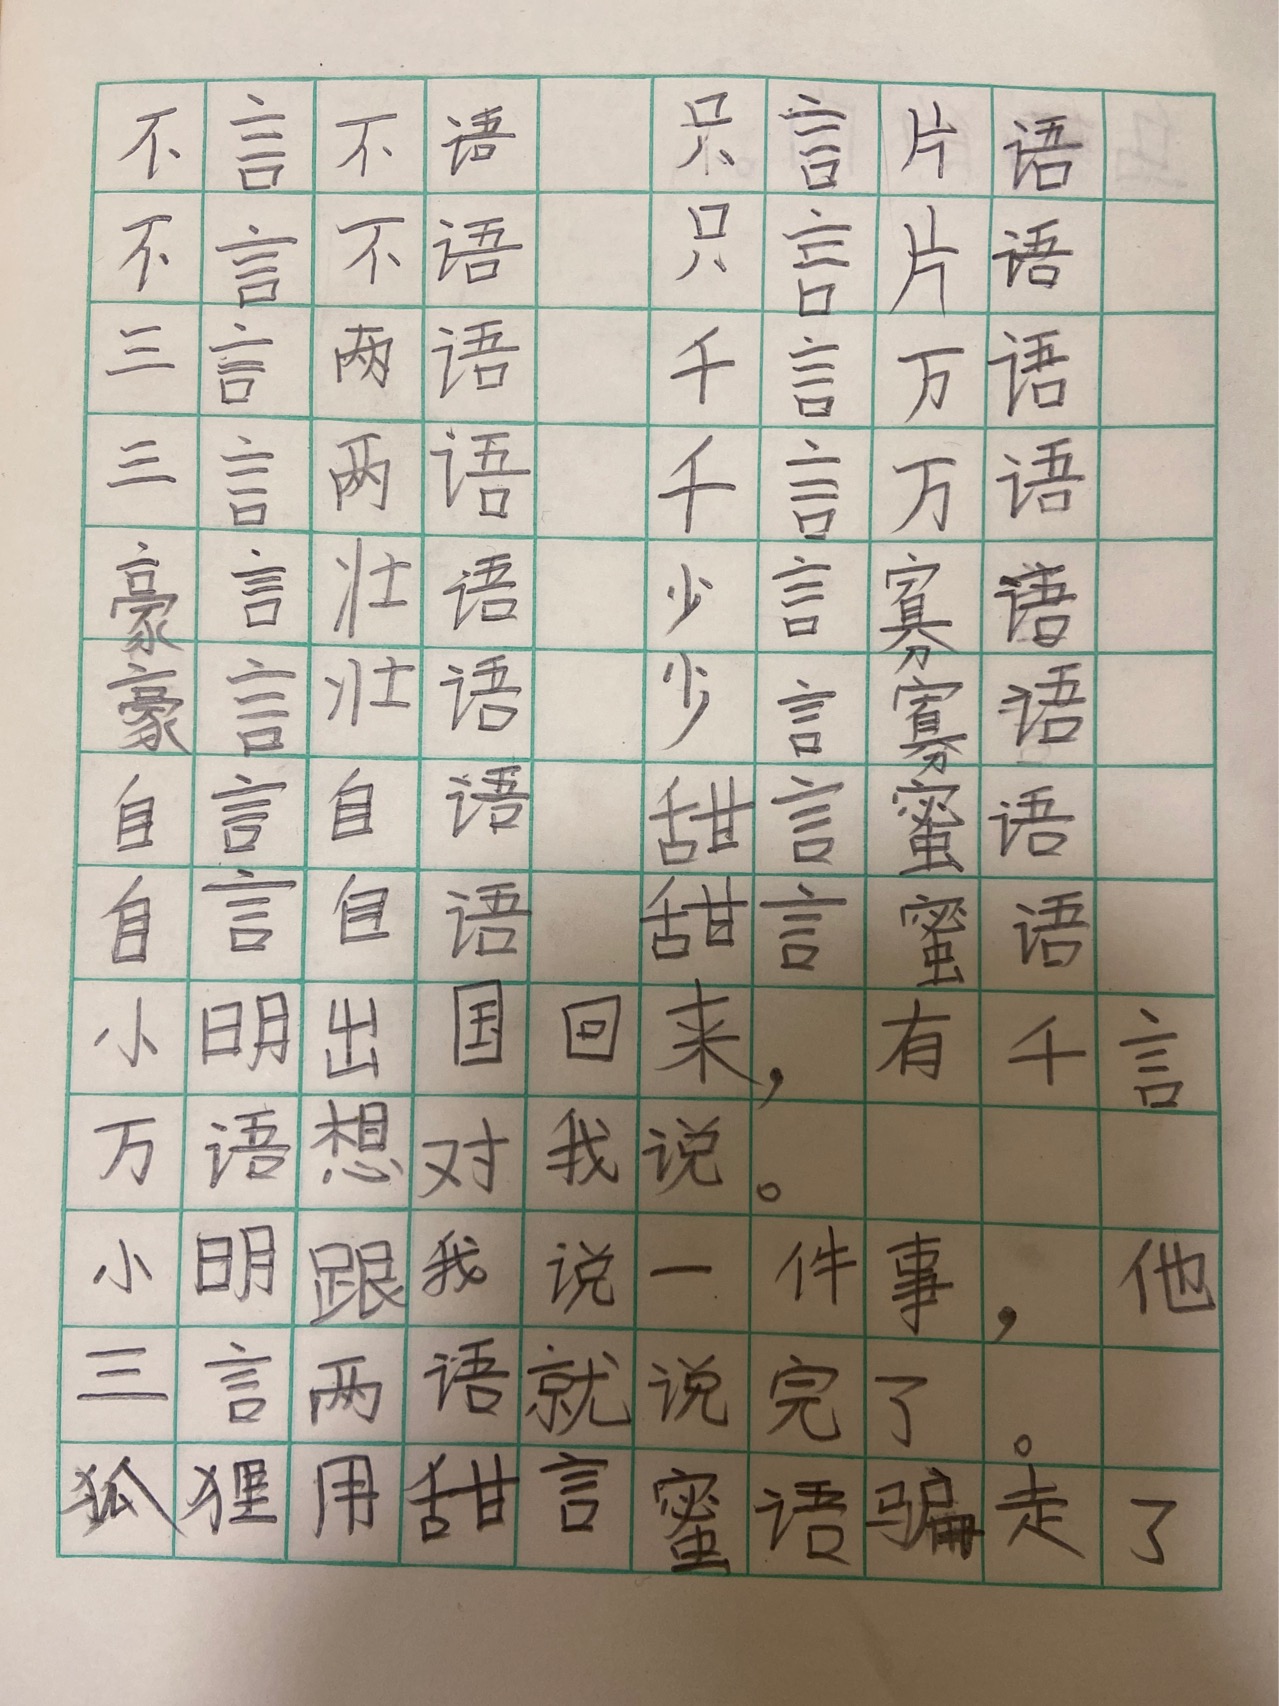 不言不语 只言片语
不言不语 只言片语
三言两语 千言万语
三言两语 千言万语
豪言壮语 少言寡语
豪言壮语 少言寡语
自言自语 甜言蜜语
自言自语 甜言蜜语
小明出国回来，有千言
万语想对我说。
小明跟我说一件事，他
三言两语就说完了。
狐狸用甜言蜜语骗走了